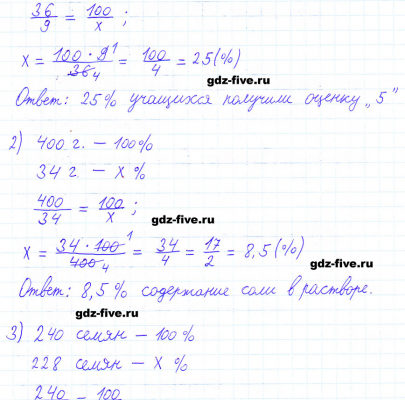 36/9 = 100/x ;
x = 100 · 9 1 / 36 4 = 100/4 = 25 (%)
gdz-five.ru
Ответ: 25% учащихся получили оценку „5"
2) 400 г. – 100%
34 г – x %
400/34 = 100/x ;
gdz-five.ru
x = 34 · 100 1 / 400 4 = 34/4 = 17/2 = 8,5 (%)
gdz-five.ru
Ответ: 8,5 % содержание соли в растворе.
gdz-five.ru
3) 240 семян – 100%
228 семян – x %
gdz-five.ru
240 = 100